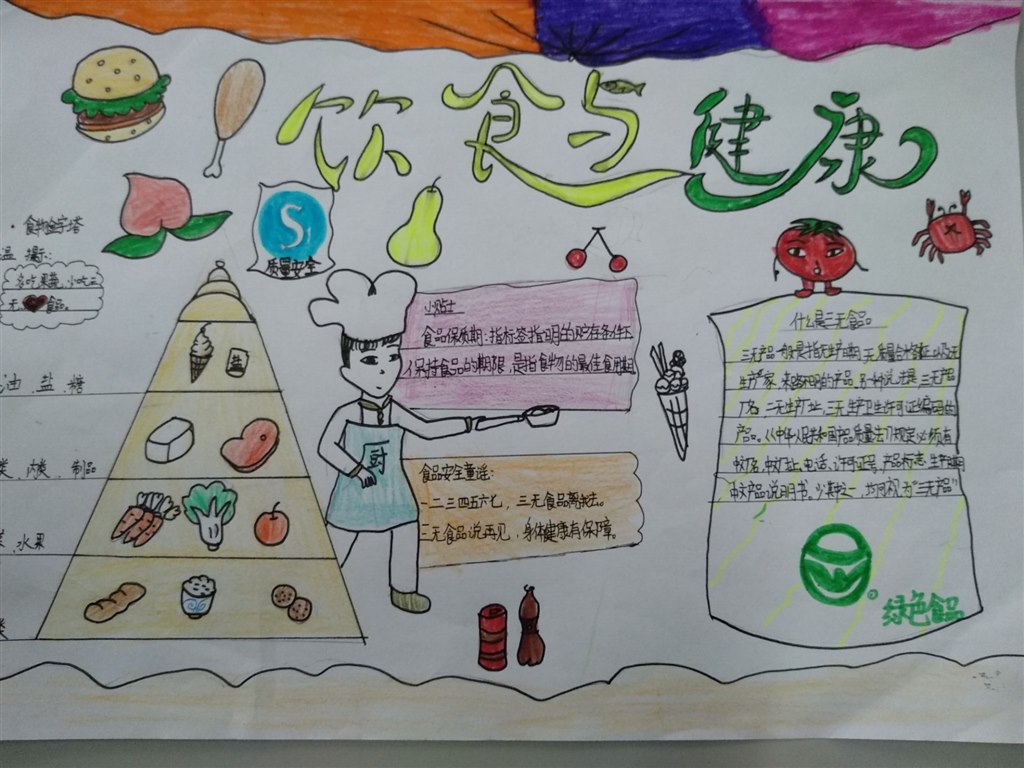 饮食与健康
食物金字塔
温 提示:
多吃果蔬,小吃三
无 食品。
油、盐、糖
类、肉类、制品
菜、水果
类
S
质量安全
盐
厨
小贴士
食品保质期:指标签指明的贮存条件下
保持食品的期限,是指食物的最佳食用期
食品安全童谣:
一二三四五六七,三无食品离我去。
三无食品说再见,身体健康有保障。
什么是三无食品。
三无产品一般是指无生产日期、无质量合格证以及无
生产厂家,来路不明的产品,另一种说法是三无产品
厂名,二无生产厂址,三无生产卫生许可证编码的
产品。《中华人民共和国产品质量法》规定必须有
中文厂名,中文厂址、电话、许可证号、产品标志、生产日期
中文产品说明书,少其中之一,均可视为"三无产品"
绿色食品